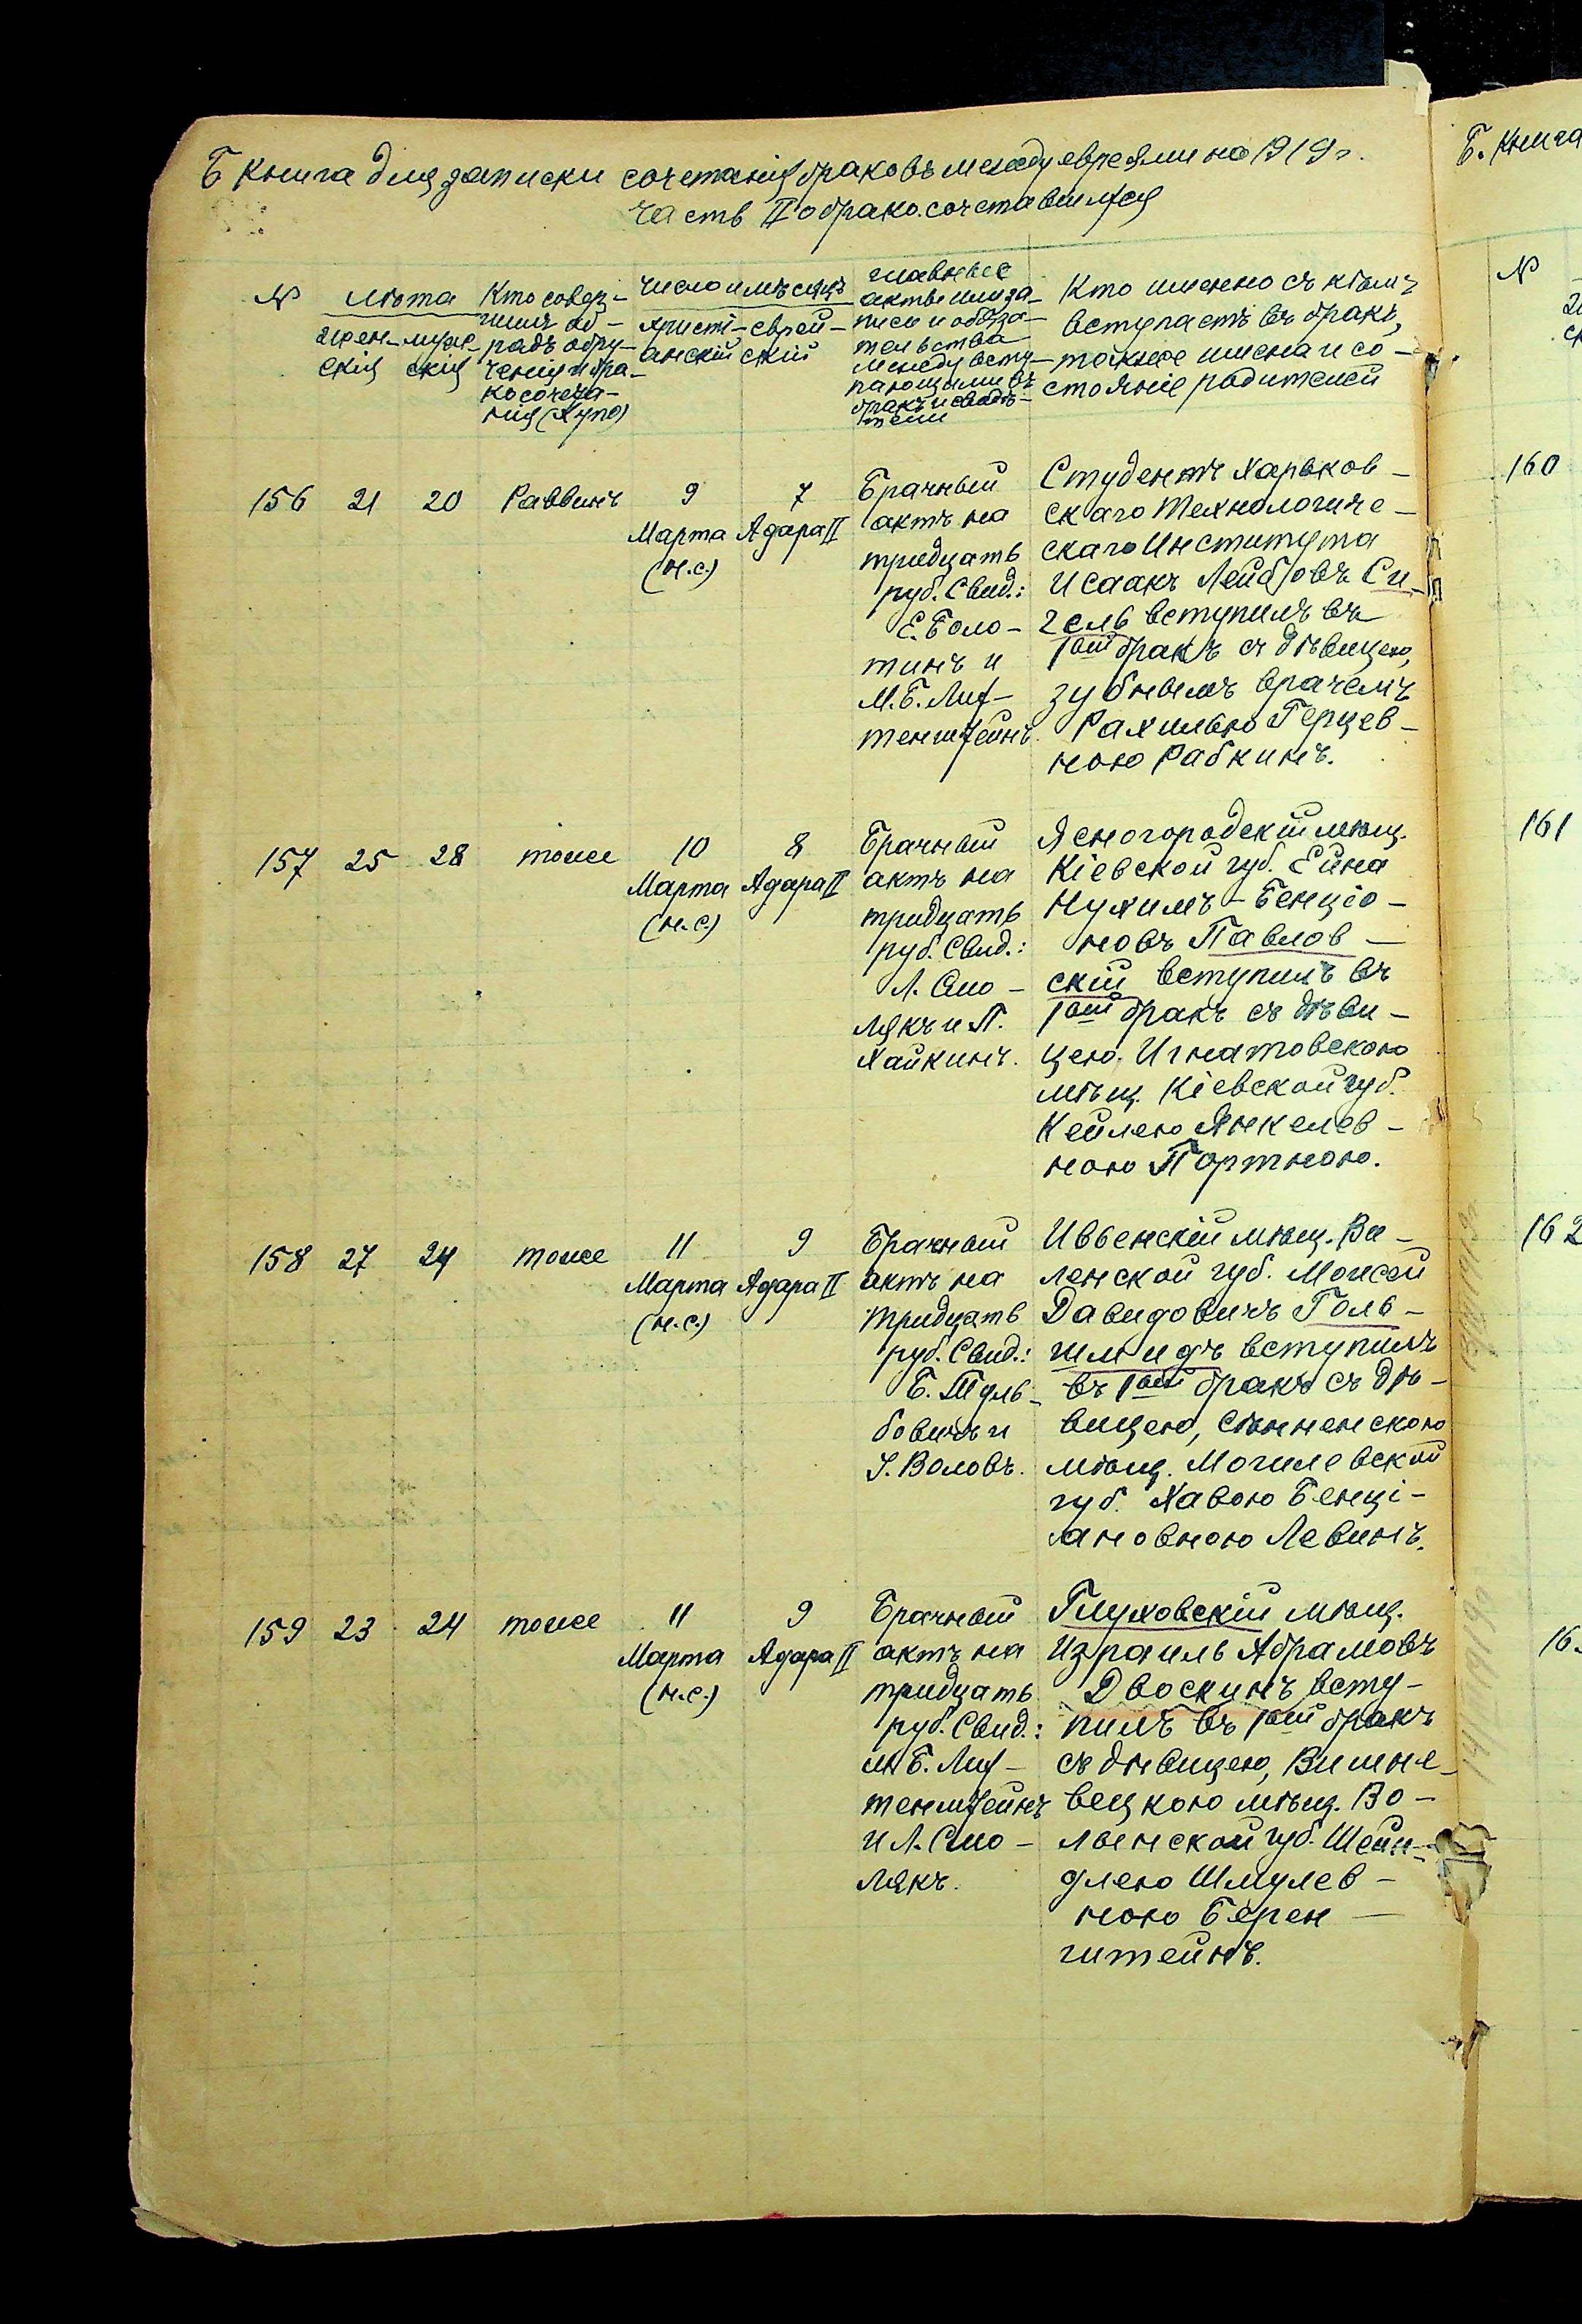 Б Книга для записки сочетанія браковъ между евреями на 1919 г.
часть II о брако.сочетавшихся
№
Лѣта
женскія
мужескія
Кто совер-
шилъ об-
рядъ обру-
ченія и бра-
косочета-
нія (Хупо)
число и мѣсяцъ
христі-
анскій
еврей-
скій
главные
акты или за-
писи и обяза-
тельства
между всту-
пающими въ
бракъ и свидѣ-
тели
Кто именно съ кѣмъ
вступаетъ въ бракъ,
также имена и со-
стояніе родителей
156 21 20 Раввинъ
9
Марта
(н.с.)
7
Адара II
Брачный
актъ на
тридцать
руб. Свид.:
Е. Боло-
тинъ и
М.Б. Лих-
тенштейнъ.
Студентъ Харьков-
скаго Технологиче-
скаго Института
Исаакъ Лейбовъ Си-
гель вступилъ въ
1ый бракъ съ дѣвицею,
зубнымъ врачемъ
Рахилью Герцев-
ною Рабкинъ.
157 25 28 тоже
10
Марта
(н.с.)
8
Адара II
Брачный
актъ на
тридцать
руб. Свид.:
Л. Смо-
лякъ и П.
Хайкинъ.
Ясногородскій мѣщ.
Кіевской губ. Ейна
Нухимъ-Бенціо-
новъ Павлов-
скій вступилъ въ
1ый бракъ съ дѣви-
цею. Игнатовскою
мѣщ. Кіевской губ.
Кейлею Янкелев-
ною Портною.
158 27 24 тоже
11
Марта
(н.с.)
9
Адара II
Брачный
актъ на
тридцать
руб. Свид.:
Б.
бовичъ и
І. Воловъ.
Ивьенскій мѣщ. Ви-
ленской губ. Моисей
Давидовичъ Голь-
шмидъ вступилъ
въ 1ый бракъ съ дѣ-
вицею, Сѣнненскою
мѣщ. Могилевской
губ. Хавою Бенці-
ановною Левинъ.
159 23 24 тоже
11
Марта
(н.с.)
9
Адара II
Брачный
актъ на
тридцать
руб. Свид.:
М.Б. Лих-
тенштейнъ
и Л. Смо-
лякъ.
Глуховскій мѣщ.
Израиль Абрамовъ
Двоскинъ всту-
пилъ въ 1ый бракъ
съ дѣвицею, Вишне-
вецкою мѣщ. Во-
лынской губ. Шейн-
длею Шмулев-
ною Берен-
штейнъ.
Б. Книга
№
160
161
162